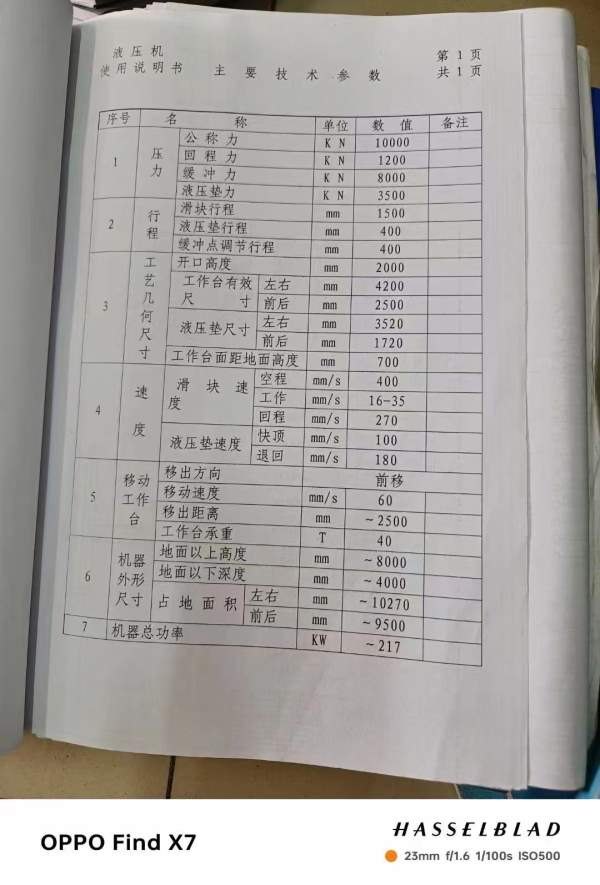 液压机
使用说明书 主要技术参数
第1页
共1页
序号 名称 单位 数值 备注
1 压力 公称力 KN 10000
回程力 KN 1200
缓冲力 KN 8000
液压垫力 KN 3500
2 行程 滑块行程 mm 1500
液压垫行程 mm 400
缓冲点调节行程 mm 400
3 工艺几何尺寸 开口高度 mm 2000
工作台有效尺寸 左右 mm 4200
前后 mm 2500
液压垫尺寸 左右 mm 3520
前后 mm 1720
工作台面距地面高度 mm 700
4 速度 滑块速度 空程 mm/s 400
工作 mm/s 16-35
回程 mm/s 270
液压垫速度 快顶 mm/s 100
退回 mm/s 180
5 移动工作台 移出方向 前移
移动速度 mm/s 60
移出距离 mm ~2500
工作台承重 T 40
6 机器外形尺寸 地面以上高度 mm ~8000
地面以下深度 mm ~4000
占地面积 左右 mm ~10270
前后 mm ~9500
7 机器总功率 KW ~217
OPPO Find X7
HASSELBLAD
23mm f/1.6 1/100s ISO500